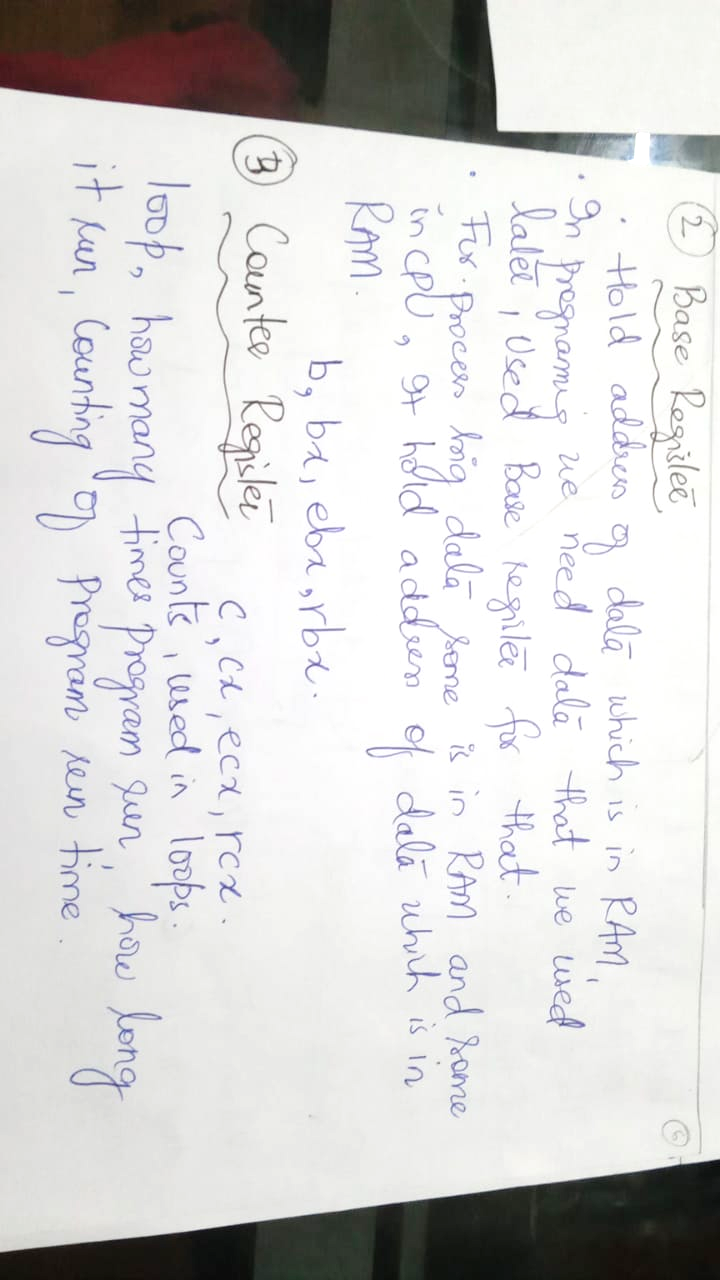 6
② Base Register
• Hold address of data which is in RAM,
• In programig we need data that we used
later, used Base register for that.
• For process big data some is in RAM and some
in CPU, It hold address of data which is in
RAM.
b, bx, ebx, rbx.
③ Counter Register
c, cx, ecx, rcx.
Counts, used in loops.
loop, how many times program run, how long
it run, Counting of program run time.